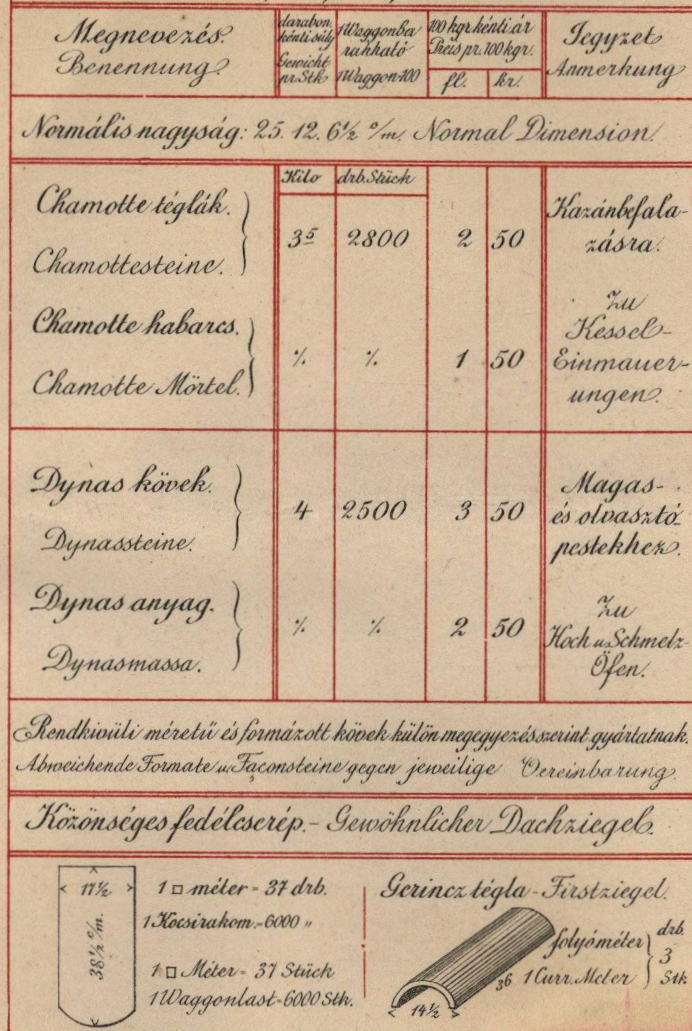 Megnevezés.
Benennung.
darabon-
kénti súly
Gewicht
pr. Stk
1 Waggonba
rakható
1 Waggon=100
100 kgr. kénti ár
Preis pr. 100 kgr.
fl. kr.
Jegyzet
Anmerkung
Normális nagyság: 25. 12. 6½ c/m. Normal Dimension.
Kilo drb. Stück
Chamotte téglák.
Chamottesteine.
3⁵ 2800 2 50
Kazánbefala-
zásra.
Chamotte habarcs.
Chamotte Mörtel.
% % 1 50
Zu
Kessel-
Einmauer-
ungen.
Dynas kövek.
Dynassteine.
4 2500 3 50
Magas-
és olvasztó
pestekhez.
Dynas anyag.
Dynasmassa.
% % 2 50
Zu
Hoch u. Schmelz-
Öfen.
Rendkivüli méretű és formázott kövek külön megegyezés szerint gyártatnak.
Abweichende Formate u. Façonsteine gegen jeweilige Vereinbarung.
Közönséges fedélcserép. - Gewöhnlicher Dachziegel.
17½
38½ c/m.
1 □ méter = 37 drb.
1 Kocsirakom. = 6000 "
1 □ Meter = 37 Stück
1 Waggonlast = 6000 Stk.
Gerincz tégla - Firstziegel.
36
14½
folyóméter
1 Curr. Meter
drb.
3
Stk